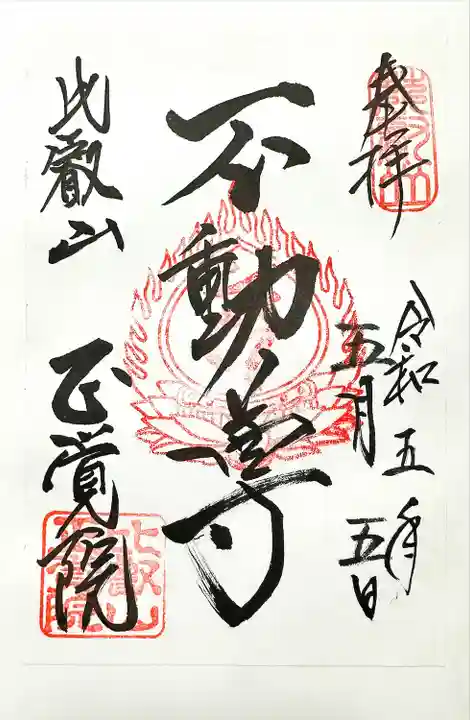 奉拝
令和五年
五月五日
不動尊
比叡山
正覚院